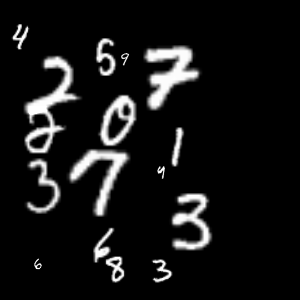 4
5 9 7
2
2 0 1
3 7 4
3
6
6 8 3